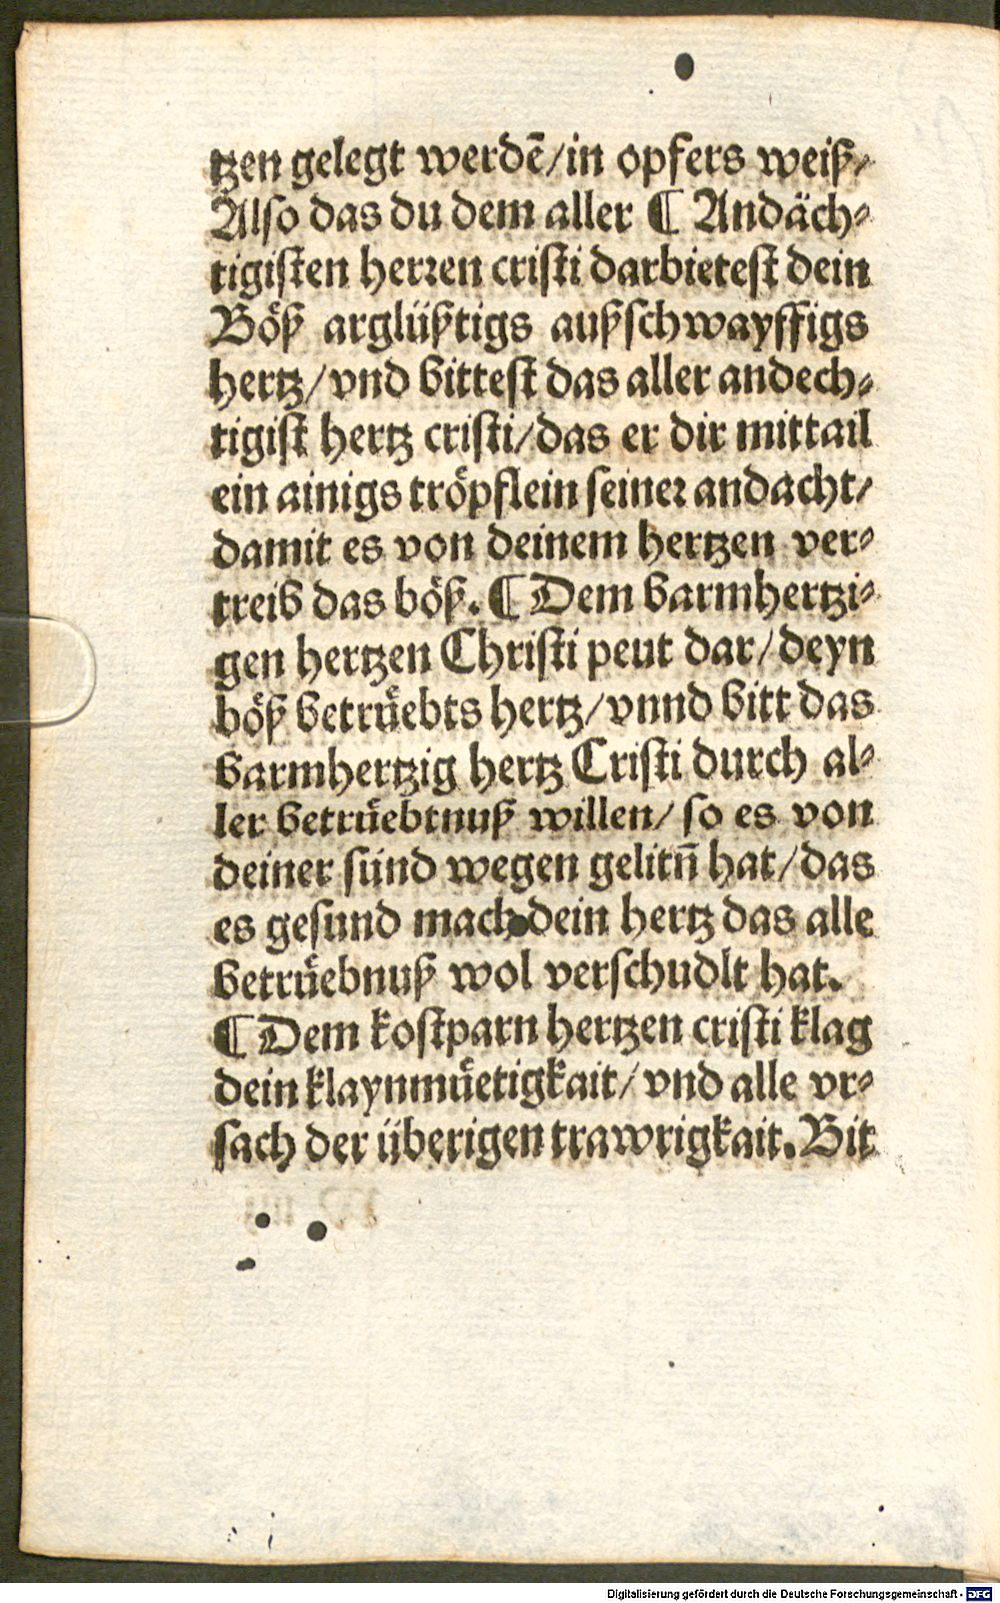 tzen gelegt werdē/in opfers weiß/
Also das du dem aller ¶ Andäch⸗
tigisten herꝛen cristi darbietest dein
Böß arglüßtigs außschwayffigs
hertz/vnd bittest das aller andech⸗
tigist hertz cristi/das er dir mittail
ein ainigs tröpflein seineꝛ andacht/
damit es von deinem hertzen ver⸗
treib das böß. ¶ Dem barmhertzi⸗
gen hertzen Christi peut dar/deyn
böß betrůebts hertz/vnnd bitt das
barmhertzig hertz Cristi durch al⸗
ler betrůebtnuß willen/ so es von
deiner sünd wegen gelitn̄ hat/das
es gesund mach dein hertz das alle
betrůebnuß wol verschudlt hat.
¶ Dem kostparn hertzen cristi klag
dein klaynmůetigkait/vnd alle vr⸗
sach der überigen trawrigkait. Bit
Digitalisierung gefördert durch die Deutsche Forschungsgemeinschaft - DFG